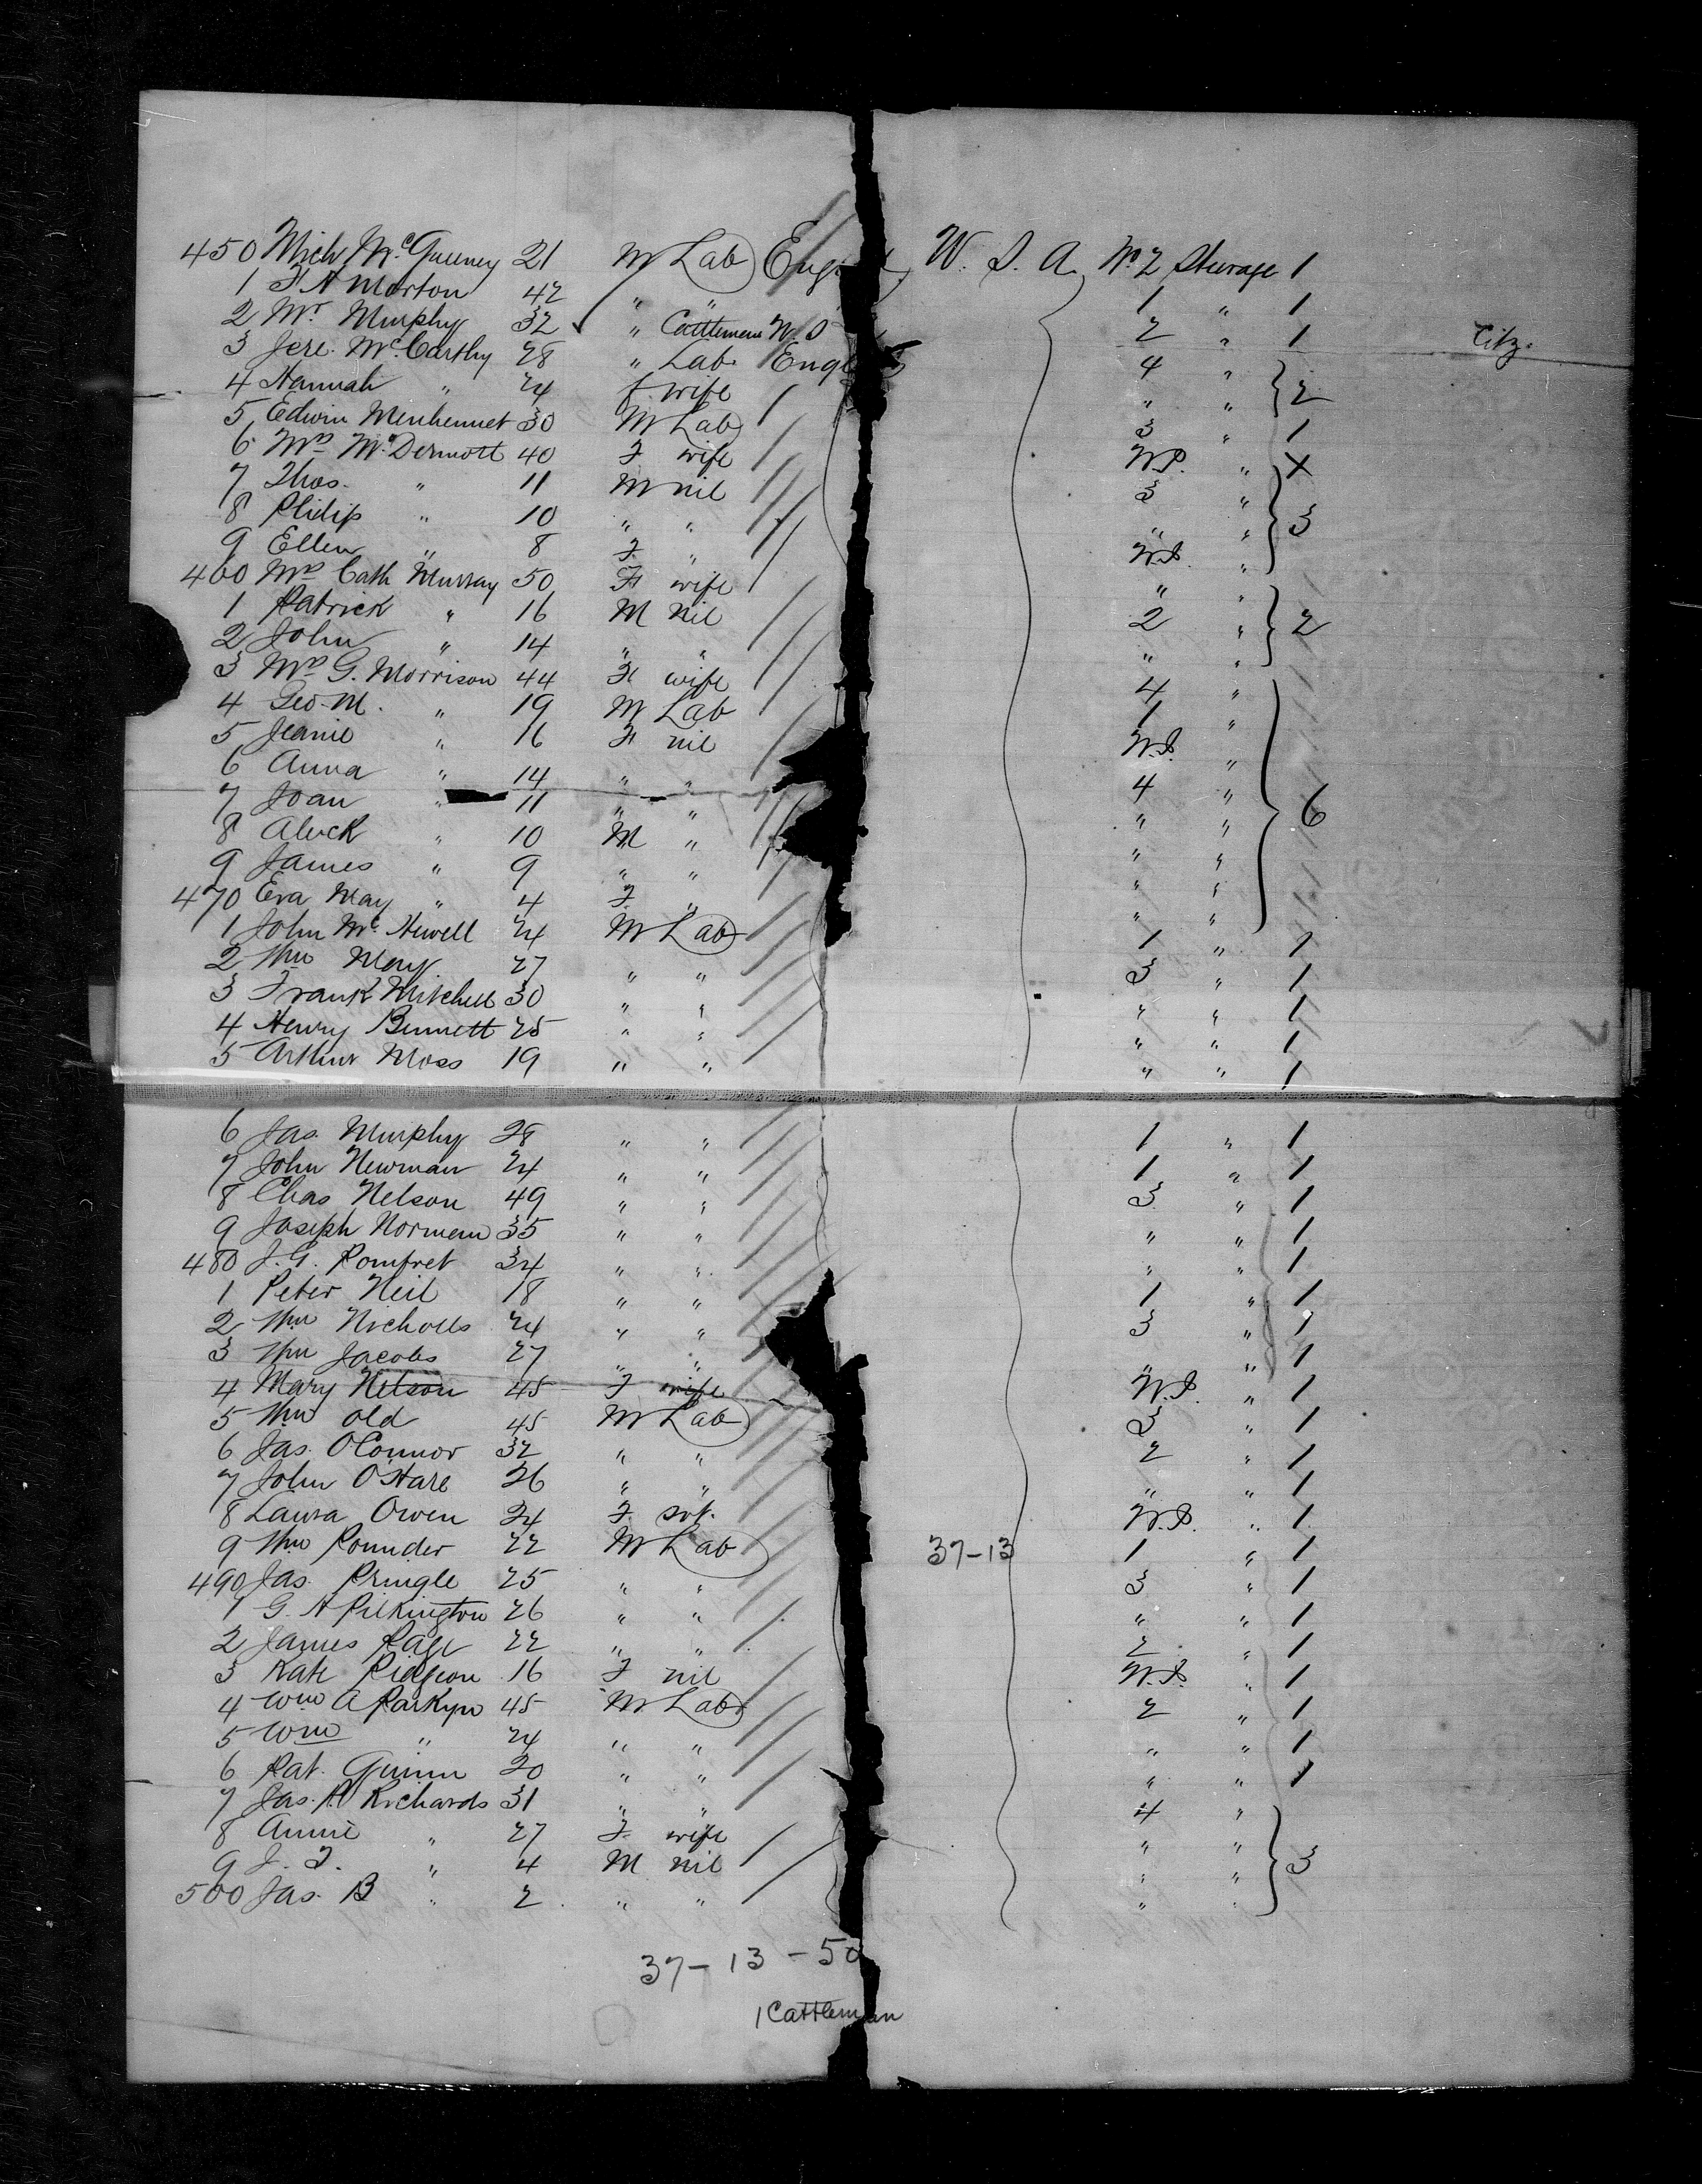 450 Mich McGueney 21 M Lab Eng U. S. A. No 2 Steerage 1
1 F A Morton 42 " " 1 " 1
2 Mr Murphy 32 " Cattleman U.S 2 " 1 Citz.
3 Jere. McCarthy 28 " Lab. Engl 4 "
4 Hannah " 24 f wife " " 2
5 Edwin Menhennet 30 M Lab 3 " 1
6 Mrs McDermott 40 F wife W.S. " X
7 Thos. " 11 M nil 3 "
8 Philip " 10 " " " " 3
9 Ellen " 8 F " W.S. "
460 Mrs Cath Murray 50 F wife " "
1 Patrick " 16 M nil 2 " 2
2 John " 14 " " " "
3 Mrs G. Morrison 44 F wife 4 "
4 Geo. M. " 19 M Lab 1 "
5 Jeanie " 16 F nil W.S. "
6 Anna " 14 " " 4 "
7 Joan " 11 " " " " 6
8 Aleck " 10 M " " "
9 James " 9 " " " "
470 Eva May " 4 F " " "
1 John Mc Newell 24 M Lab 1 " 1
2 Wm May 27 " " 3 " 1
3 Frank Mitchell 30 " " " " 1
4 Henry Bennett 25 " " " " 1
5 Arthur Moss 19 " " " " 1
6 Jas. Murphy 28 " " 1 " 1
7 John Newman 24 " " 1 " 1
8 Chas Nelson 49 " " 3 " 1
9 Joseph Norman 35 " " " " 1
480 J. G. Pomfret 34 " " " " 1
1 Peter Neil 18 " " 1 " 1
2 Wm Nicholls 24 " " 3 " 1
3 Wm Jacobs 27 " " " " 1
4 Mary Nelson 45 F wife W.S. " 1
5 Wm Old 45 M Lab 3 " 1
6 Jas. O'Connor 32 " " 2 " 1
7 John O'Hare 26 " " " " 1
8 Laura Owen 24 F svt. W.S. " 1
9 Wm Pounder 22 M Lab 37-13 1 " 1
490 Jas. Pringle 25 " " 3 " 1
1 G. A Pilkington 26 " " " " 1
2 James Page 22 " " 2 " 1
3 Kate Pidgeon 16 F nil W.S. " 1
4 Wm A Parkyn 45 M Lab 2 " 1
5 Wm " 24 " " " " 1
6 Pat. Quinn 20 " " " " 1
7 Jas. H Richards 31 " " 4 "
8 Annie " 27 F wife " "
9 J. T. " 4 M nil " " 3
500 Jas. B " 2 " " " "
37-13-50
1 Cattleman